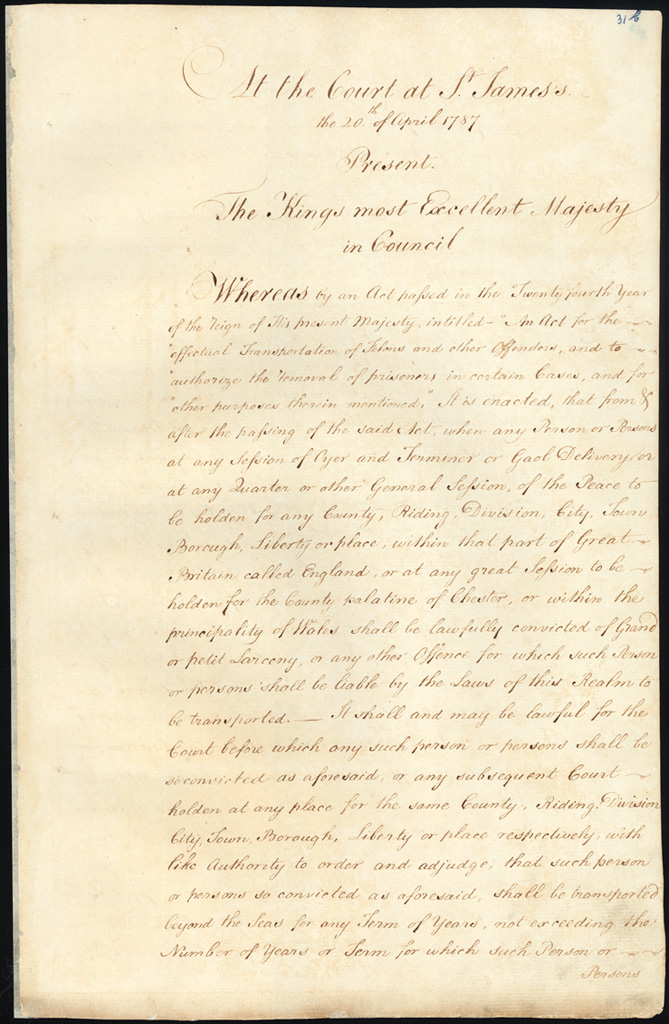 31 b
At the Court at St. James's.
the 20th of April 1787
Present.
The Kings most Excellent Majesty
in Council
Whereas by an Act passed in the Twenty fourth Year
of the Reign of His present Majesty, intitled - "An Act for the
"effectual Transportation of Felons and other Offenders, and to
"authorize the removal of prisoners in certain Cases, and for
"other purposes therein mentioned," It is enacted, that from &
after the passing of the said Act, when any Person or Persons
at any Session of Oyer and Terminer or Gaol Delivery, or
at any Quarter or other General Session, of the Peace to
be holden for any County, Riding, Division, City, Town
Borough, Liberty or place, within that part of Great
Britain called England, or at any great Session to be
holden for the County palatine of Chester, or within the
principality of Wales shall be lawfully convicted of Grand
or petit Larceny, or any other Offence for which such Person
or persons shall be liable by the Laws of this Realm to
be transported. — It shall and may be lawful for the
Court before which any such person or persons shall be
so convicted as aforesaid, or any subsequent Court
holden at any place for the same County, Riding, Division
City, Town, Borough, Liberty or place respectively, with
like Authority to order and adjudge, that such person
or persons so convicted as aforesaid, shall be transported
beyond the Seas for any Term of Years, not exceeding the
Number of Years or Term for which such Person or
Persons